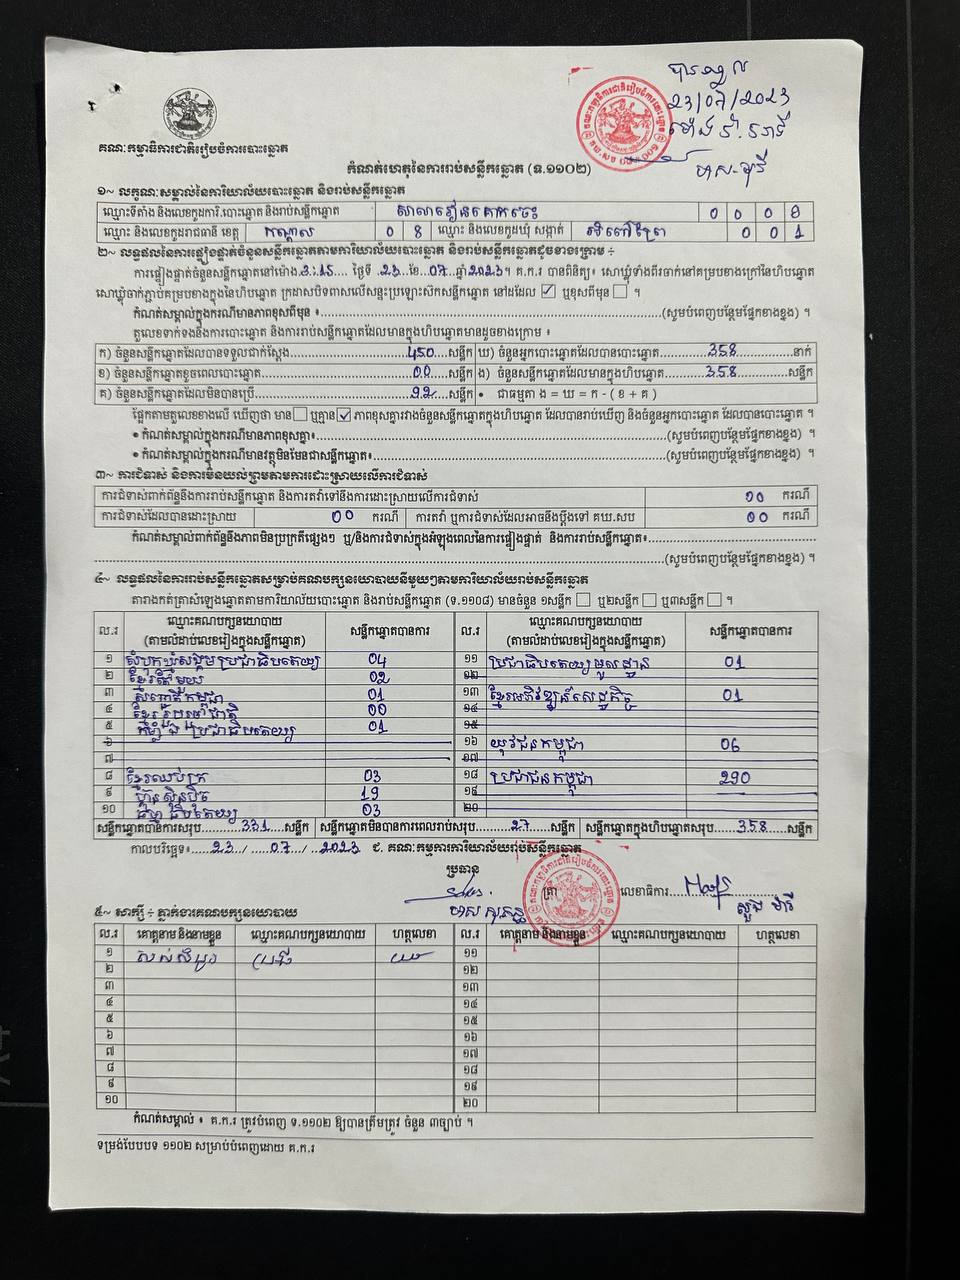 បានឃើញ
23/07/2023
គណៈកម្មាធិការជាតិរៀបចំការបោះឆ្នោត
កំណត់ហេតុនៃការរាប់សន្លឹកឆ្នោត (ទ.១១០២)
១~ លក្ខណៈសម្គាល់នៃការិយាល័យបោះឆ្នោត និងរាប់សន្លឹកឆ្នោត
ឈ្មោះទីតាំង និងលេខកូដការិ.បោះឆ្នោត និងរាប់សន្លឹកឆ្នោត
ឈ្មោះ និងលេខកូដរាជធានី ខេត្ត កណ្តាល 0 8 ឈ្មោះ និងលេខកូដឃុំ សង្កាត់ 0 0 1
២~ លទ្ធផលនៃការផ្ទៀងផ្ទាត់ចំនួនសន្លឹកឆ្នោតតាមការិយាល័យបោះឆ្នោត និងរាប់សន្លឹកឆ្នោតដូចខាងក្រោម ÷
ការផ្ទៀងផ្ទាត់ចំនួនសន្លឹកឆ្នោតនៅម៉ោង 3:15 ថ្ងៃទី 23 ខែ 07 ឆ្នាំ 2023។ គ.ក.រ បានពិនិត្យ៖ សោឃ្លុំទាំងពីរចាក់នៅគម្របខាងក្រៅនៃហិបឆ្នោត
សោឃ្លុំចាក់ភ្ជាប់គម្របខាងក្នុងនៃហិបឆ្នោត ក្រដាសបិទពាសលើសន្ទះប្រឡោះសិកសន្លឹកឆ្នោត នៅដដែល ☑ ឬខុសពីមុន ☐ ។
កំណត់សម្គាល់ក្នុងករណីមានភាពខុសពីមុន ៖ (សូមបំពេញបន្ថែមផ្នែកខាងខ្នង) ។
តួលេខទាក់ទងនឹងការបោះឆ្នោត និងការរាប់សន្លឹកឆ្នោតដែលមានក្នុងហិបឆ្នោតមានដូចខាងក្រោម ៖
ក) ចំនួនសន្លឹកឆ្នោតដែលបានទទួលជាក់ស្តែង 450 សន្លឹក ឃ) ចំនួនអ្នកបោះឆ្នោតដែលបានបោះឆ្នោត 358 នាក់
ខ) ចំនួនសន្លឹកឆ្នោតខូចពេលបោះឆ្នោត 00 សន្លឹក ង) ចំនួនសន្លឹកឆ្នោតដែលមានក្នុងហិបឆ្នោត 358 សន្លឹក
គ) ចំនួនសន្លឹកឆ្នោតដែលមិនបានប្រើ 92 សន្លឹក • ជាធម្មតា ង = ឃ = ក - ( ខ + គ )
ផ្អែកតាមតួលេខខាងលើ ឃើញថា មាន ☐ ឬគ្មាន ☑ ភាពខុសគ្នារវាងចំនួនសន្លឹកឆ្នោតក្នុងហិបឆ្នោត ដែលបានរាប់ឃើញ និងចំនួនអ្នកបោះឆ្នោត ដែលបានបោះឆ្នោត ។
• កំណត់សម្គាល់ក្នុងករណីមានភាពខុសគ្នា៖ (សូមបំពេញបន្ថែមផ្នែកខាងខ្នង) ។
• កំណត់សម្គាល់ក្នុងករណីមានវត្ថុមិនមែនជាសន្លឹកឆ្នោត៖ (សូមបំពេញបន្ថែមផ្នែកខាងខ្នង) ។
៣~ ការជំទាស់ និងការមិនយល់ព្រមតាមការដោះស្រាយលើការជំទាស់
ការជំទាស់ពាក់ព័ន្ធនឹងការរាប់សន្លឹកឆ្នោត និងការតវ៉ាទៅនឹងការដោះស្រាយលើការជំទាស់ 00 ករណី
ការជំទាស់ដែលបានដោះស្រាយ 00 ករណី ការតវ៉ា ឬការជំទាស់ដែលអាចនឹងប្តឹងទៅ គឃ.សប 00 ករណី
កំណត់សម្គាល់ពាក់ព័ន្ធនឹងភាពមិនប្រក្រតីផ្សេងៗ ឬ/និងការជំទាស់ក្នុងអំឡុងពេលនៃការផ្ទៀងផ្ទាត់ និងការរាប់សន្លឹកឆ្នោត៖
(សូមបំពេញបន្ថែមផ្នែកខាងខ្នង) ។
៤~ លទ្ធផលនៃការរាប់សន្លឹកឆ្នោតសម្រាប់គណបក្សនយោបាយនីមួយៗតាមការិយាល័យរាប់សន្លឹកឆ្នោត
តារាងកត់ត្រាសំឡេងឆ្នោតតាមការិយាល័យបោះឆ្នោត និងរាប់សន្លឹកឆ្នោត (ទ.១១០៨) មានចំនួន ១សន្លឹក ☐ ឬ២សន្លឹក ☐ ឬ៣សន្លឹក ☐ ។
ល.រ ឈ្មោះគណបក្សនយោបាយ (តាមលំដាប់លេខរៀងក្នុងសន្លឹកឆ្នោត) សន្លឹកឆ្នោតបានការ ល.រ ឈ្មោះគណបក្សនយោបាយ (តាមលំដាប់លេខរៀងក្នុងសន្លឹកឆ្នោត) សន្លឹកឆ្នោតបានការ
១ សំបុកឃ្មុំសង្គមប្រជាធិបតេយ្យ 04 ១១ ប្រជាធិបតេយ្យមូលដ្ឋាន 01
២ ខ្មែរតែមួយ 02 ១២
៣ សញ្ជាតិកម្ពុជា 01 ១៣ ខ្មែរអភិវឌ្ឍន៍សេដ្ឋកិច្ច 01
៤ ខ្មែររួបរួមជាតិ 00 ១៤
៥ កម្លាំងប្រជាធិបតេយ្យ 01 ១៥
៦ ១៦ យុវជនកម្ពុជា 06
៧ ១៧
៨ ខ្មែរឈប់ក្រ 03 ១៨ ប្រជាជនកម្ពុជា 290
៩ ហ្វ៊ុនស៊ិនប៉ិច 19 ១៩
១០ ធម្មាធិបតេយ្យ 03 ២០
សន្លឹកឆ្នោតបានការសរុប 331 សន្លឹក សន្លឹកឆ្នោតមិនបានការពេលរាប់សរុប 27 សន្លឹក សន្លឹកឆ្នោតក្នុងហិបឆ្នោតសរុប 358 សន្លឹក
កាលបរិច្ឆេទ៖ 23 / 07 / 2023 ជ. គណៈកម្មការការិយាល័យរាប់សន្លឹកឆ្នោត
ប្រធាន
ត្រា លេខាធិការ
៥~ សាក្សី ÷ ភ្នាក់ងារគណបក្សនយោបាយ
ល.រ គោត្តនាម និងនាមខ្លួន ឈ្មោះគណបក្សនយោបាយ ហត្ថលេខា ល.រ គោត្តនាម និងនាមខ្លួន ឈ្មោះគណបក្សនយោបាយ ហត្ថលេខា
១ ១១
២ ១២
៣ ១៣
៤ ១៤
៥ ១៥
៦ ១៦
៧ ១៧
៨ ១៨
៩ ១៩
១០ ២០
កំណត់សម្គាល់ ៖ គ.ក.រ ត្រូវបំពេញ ទ.១១០២ ឱ្យបានត្រឹមត្រូវ ចំនួន ៣ច្បាប់ ។
ទម្រង់បែបបទ ១១០២ សម្រាប់បំពេញដោយ គ.ក.រ